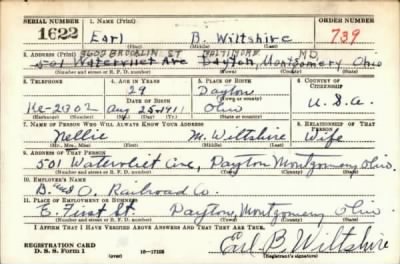 SERIAL NUMBER 1. NAME (Print) ORDER NUMBER
1622 Earl B. Wiltshire 739
(First) (Middle) (Last)
3602 BROOKLIN ST BALTIMORE MD
2. ADDRESS (Print)
501 Watervliet Ave Dayton, Montgomery Ohio
(Number and street or R. F. D. number) (Town) (County) (State)
3. TELEPHONE 4. AGE IN YEARS 5. PLACE OF BIRTH 6. COUNTRY OF CITIZENSHIP
29 Dayton
DATE OF BIRTH (Town or county)
Ke-2302 Aug 25-1911 Ohio U.S.A.
(Exchange) (Number) (Mo.) (Day) (Yr.) (State or country)
7. NAME OF PERSON WHO WILL ALWAYS KNOW YOUR ADDRESS 8. RELATIONSHIP OF THAT PERSON
Nellie M. Wiltshire Wife
(Mr., Mrs., Miss) (First) (Middle) (Last)
9. ADDRESS OF THAT PERSON
501 Watervliet Ave, Dayton Montgomery Ohio.
(Number and street or R. F. D. number) (Town) (County) (State)
10. EMPLOYER'S NAME
B. and O. Railroad Co.
11. PLACE OF EMPLOYMENT OR BUSINESS
E. First St Dayton, Montgomery Ohio.
(Number and street or R. F. D. number) (Town) (County) (State)
I AFFIRM THAT I HAVE VERIFIED ABOVE ANSWERS AND THAT THEY ARE TRUE.
REGISTRATION CARD
D. S. S. Form 1 (over) 16-17105 Earl B. Wiltshire
(Registrant's signature)